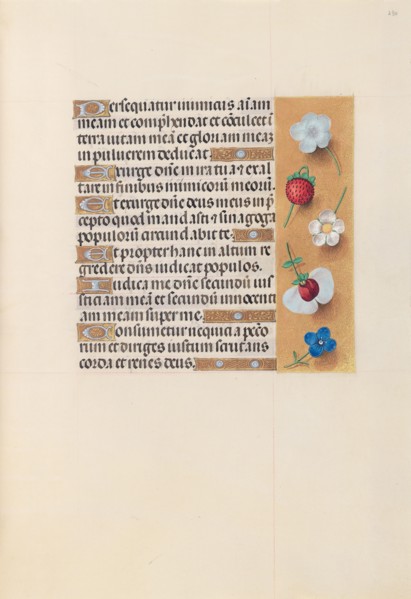 Persequatur inimicus aīam
meam et comp̄hendat et cōculcet ī
terra uitam meā et gloriam meaz
in puluerem deducat.
Exurge dn̄e in ira tua et exal
tare in finibus inimicorū meorū.
Et exurge dn̄e deus meus in p̄
cepto quod mandasti et sinagoga
populorū circundabit te.
Et propter hanc in altum re
gredere dn̄s iudicat populos.
Iudica me dn̄e secundū ius
ticiam meā et secundū innocen
tiam meam super me.
Consumetur nequicia pecca
torum et diriges iustum scrutans
corda et renes deus.